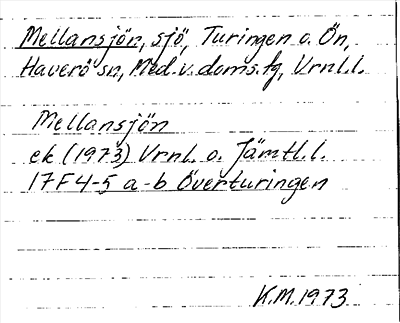 Mellansjön, sjö, Turingen o. Ön,
Haverö sn, Med. v. doms.fg, Vrnl.l.
Mellansjön
ek (1973) Vrnl. o. Jämtl.l.
17F4-5 a-b Överturingen
K.M. 1973